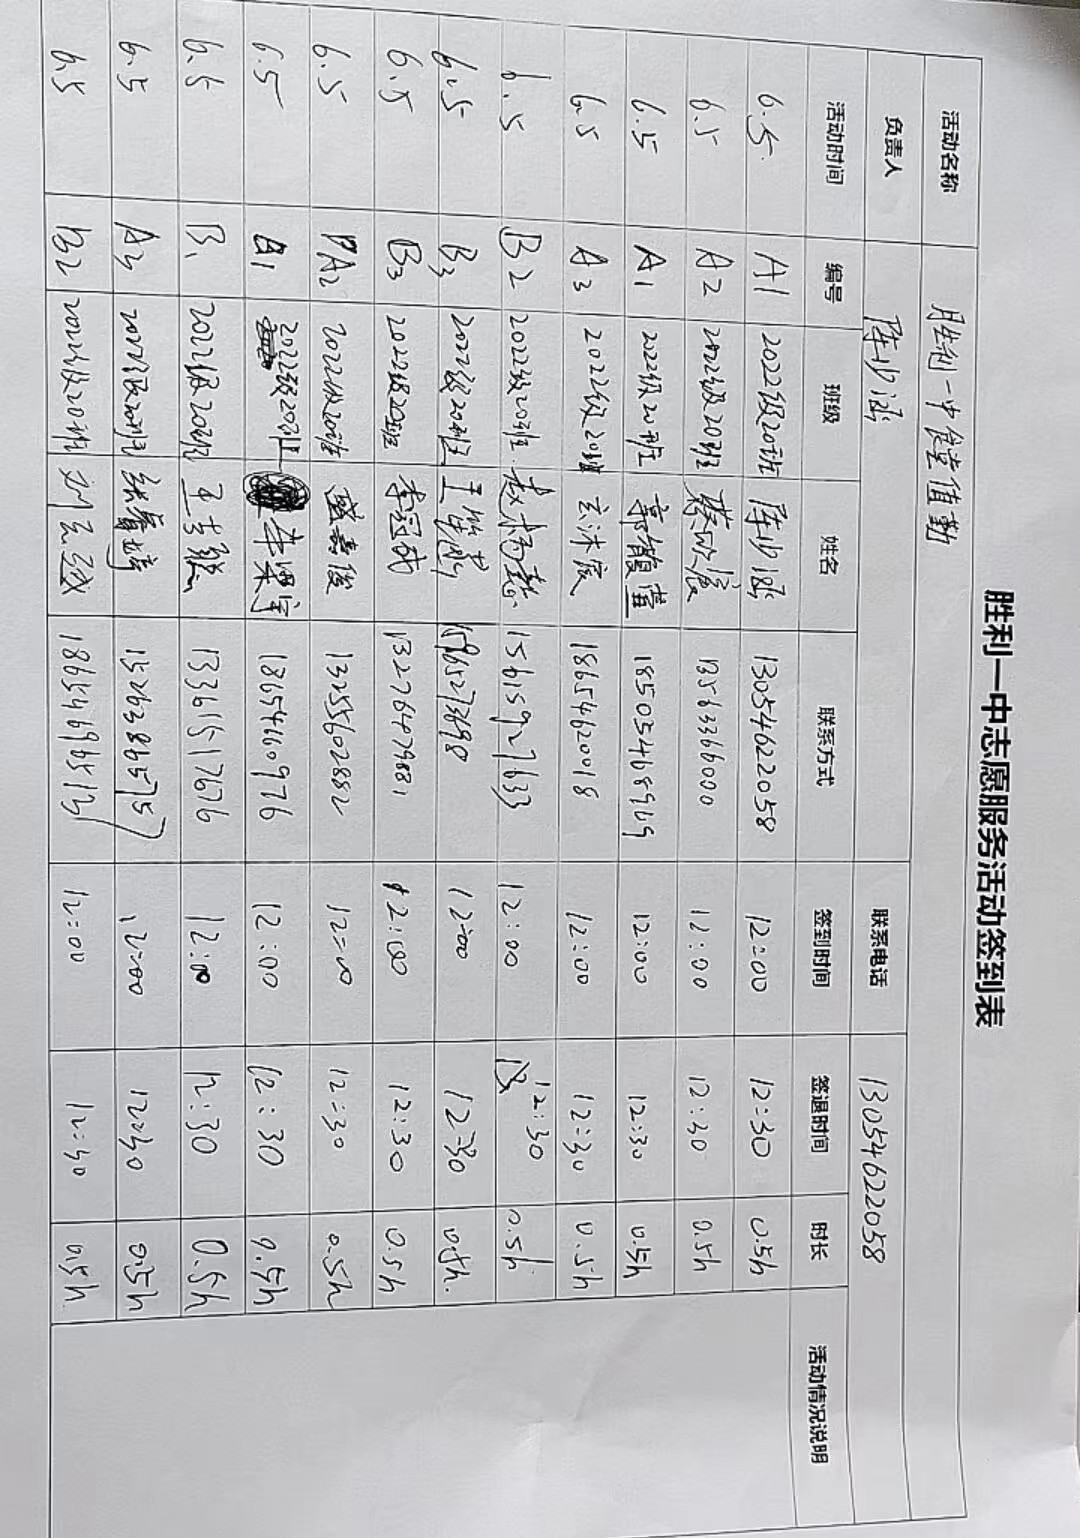 胜利一中志愿服务活动签到表
活动名称 胜利一中食堂值勤
负责人 陈少涵 联系电话 13054622058
活动时间 编号 班级 姓名 联系方式 签到时间 签退时间 时长 活动情况说明
6.5 A1 2022级20班 陈少涵 13054622058 12:00 12:30 0.5h
6.5 A2 2022级20班 蔡欣宸 13563366000 12:00 12:30 0.5h
6.5 A1 2022级20班 郭馥萱 18505468969 12:00 12:30 0.5h
6.5 A3 2022级20班 玄沐宸 18654620018 12:00 12:30 0.5h
6.5 B2 2022级20班 赵 15615927633 12:00 12:30 0.5h
6.5 B3 2022级20班 王 15965273698 12:00 12:30 0.5h.
6.5 B3 2022级20班 李冠成 13276479881 12:00 12:30 0.5h
6.5 A2 2022级20班 盛嘉俊 13255602882 12:00 12:30 0.5h
6.5 A1 2022级20班 李梁宇 18654660976 12:00 12:30 0.5h
6.5 B1 2022级20班 王 13361517676 12:00 12:30 0.5h
6.5 A3 2022级20班 12:00 12:30 0.5h
6.5 B2 2022级20班 刘 12:00 12:30 0.5h.